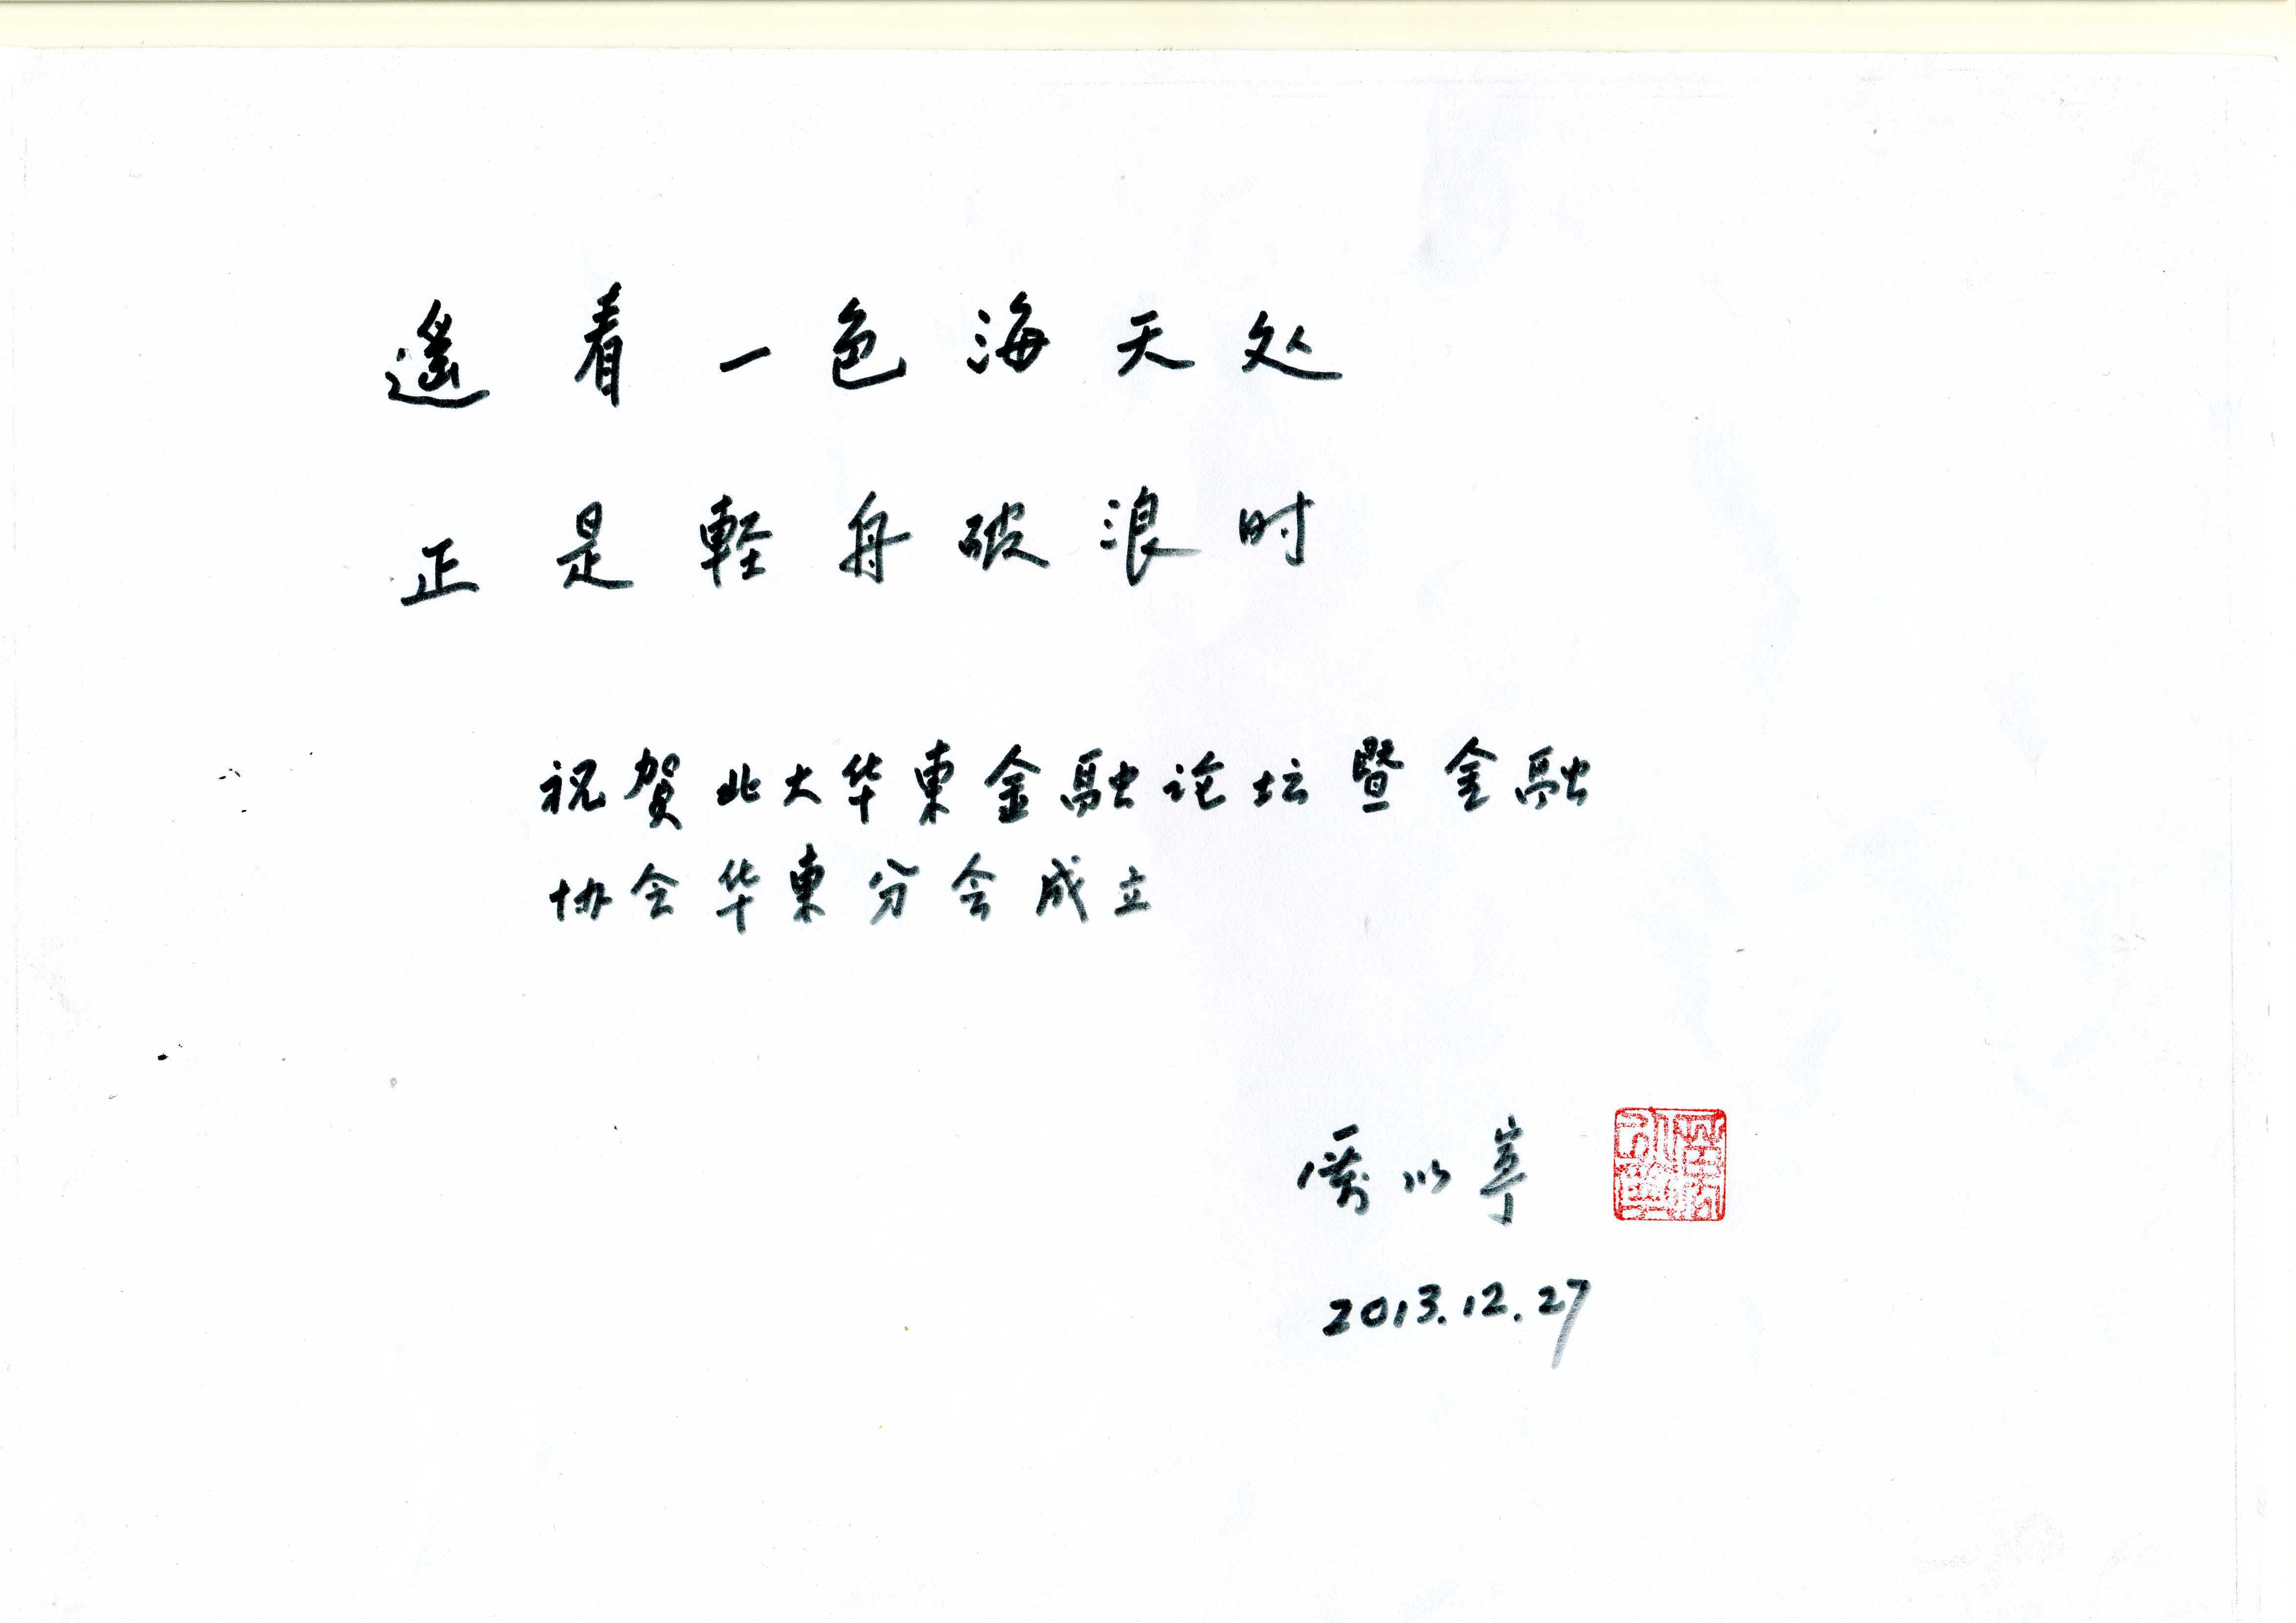 遙看一色海天处
正是軽舟破浪时
祝贺北大华東金融论坛暨金融
协会华東分会成立
厲以寧
2013.12.27